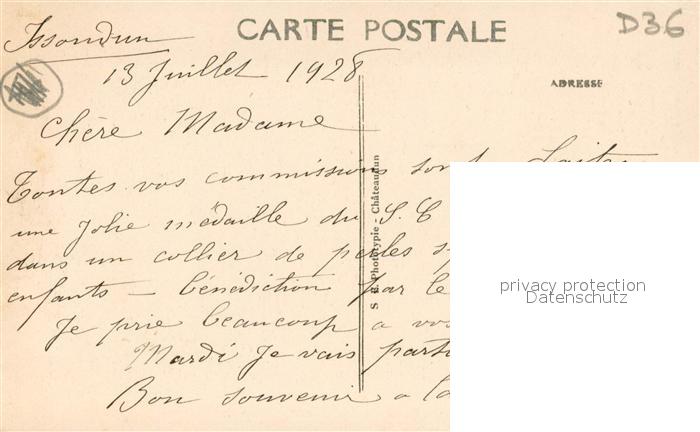 Issoudun
CARTE POSTALE
D36
13 Juillet 1928
ADRESSE
Chère Madame
Toutes vos commissions sont faites
une jolie médaille du S. C
dans un collier de perles
enfants – bénédiction par le
Je prie beaucoup a vos
Mardi je vais
Bon souvenir a
S Phototypie - Châteaudun
privacy protection
Datenschutz